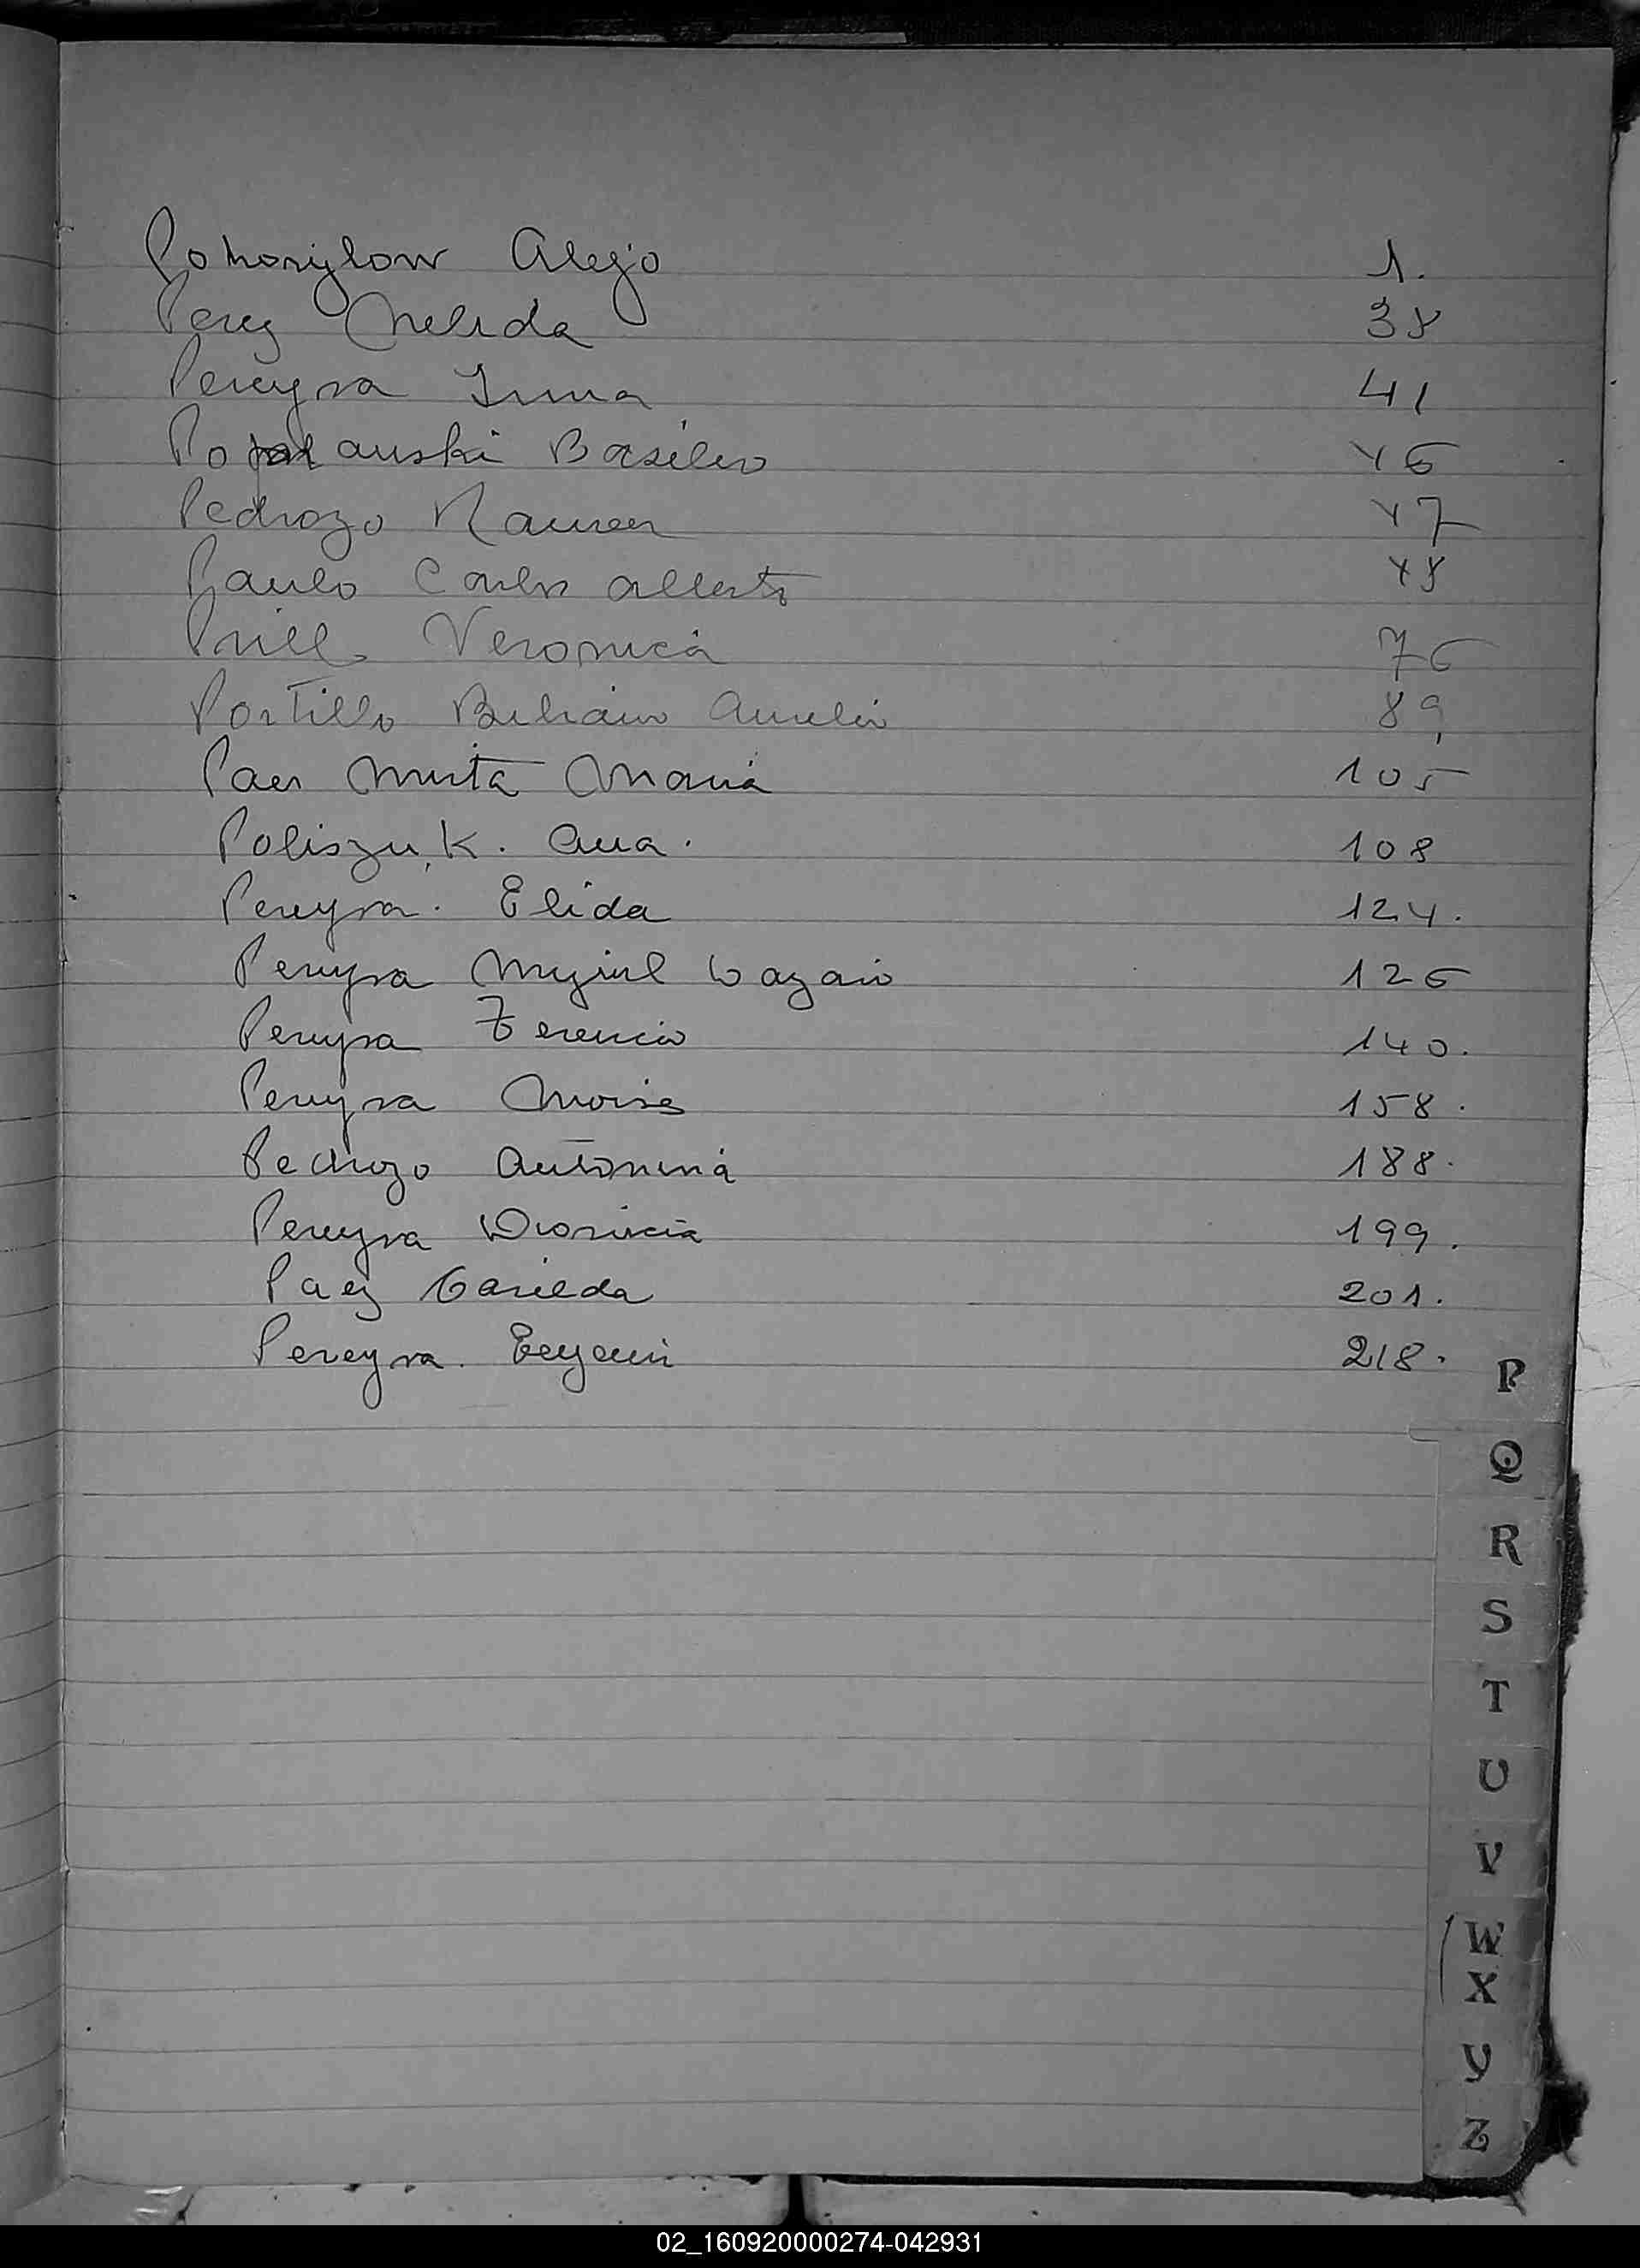 Pohorylow Alejo 1.
Perez Nelida 38
Pereyra Irma 41
Basilio 46
Pedrozo Ramon 47
Paulo Carlos Alberto 48
Prill Veronica 76
Portillo Aurelio 89
Paez Mirta Maria 105
Poliszuk. Ana. 108
Pereyra. Elida 124.
Pereyra Miguel 126
Pereyra Terencio 140.
Pereyra Moises 158.
Pedrozo Antonina 188.
Pereyra Dionicia 199.
Paez Casilda 201.
Pereyra. Eugenia 218.
P
Q
R
S
T
U
V
W
X
Y
Z
02_160920000274-042931